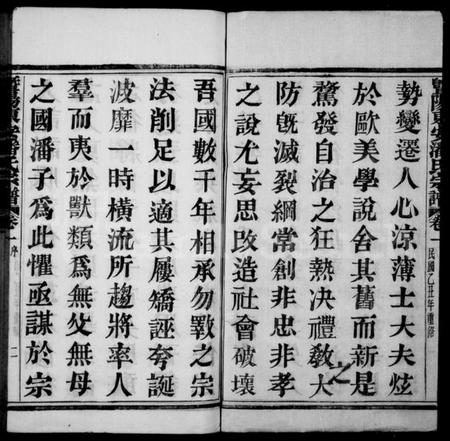 暨陽東安潘氏宗譜 卷一 民國乙丑年重修
勢變遷人心涼薄士大夫炫
於歐美學說舍其舊而新是
驚發自治之狂熱决禮敎大
之
防旣滅裂綱常創非忠非孝
之說尤妄思改造社會破壞
吾國數千年相承勿斁之宗
法削足以適其屨矯誣夸誕
波靡一時橫流所趨將率人
羣而夷於獸類爲無父無母
之國潘子爲此懼亟謀於宗
暨陽東安潘氏宗譜 卷一 序 二